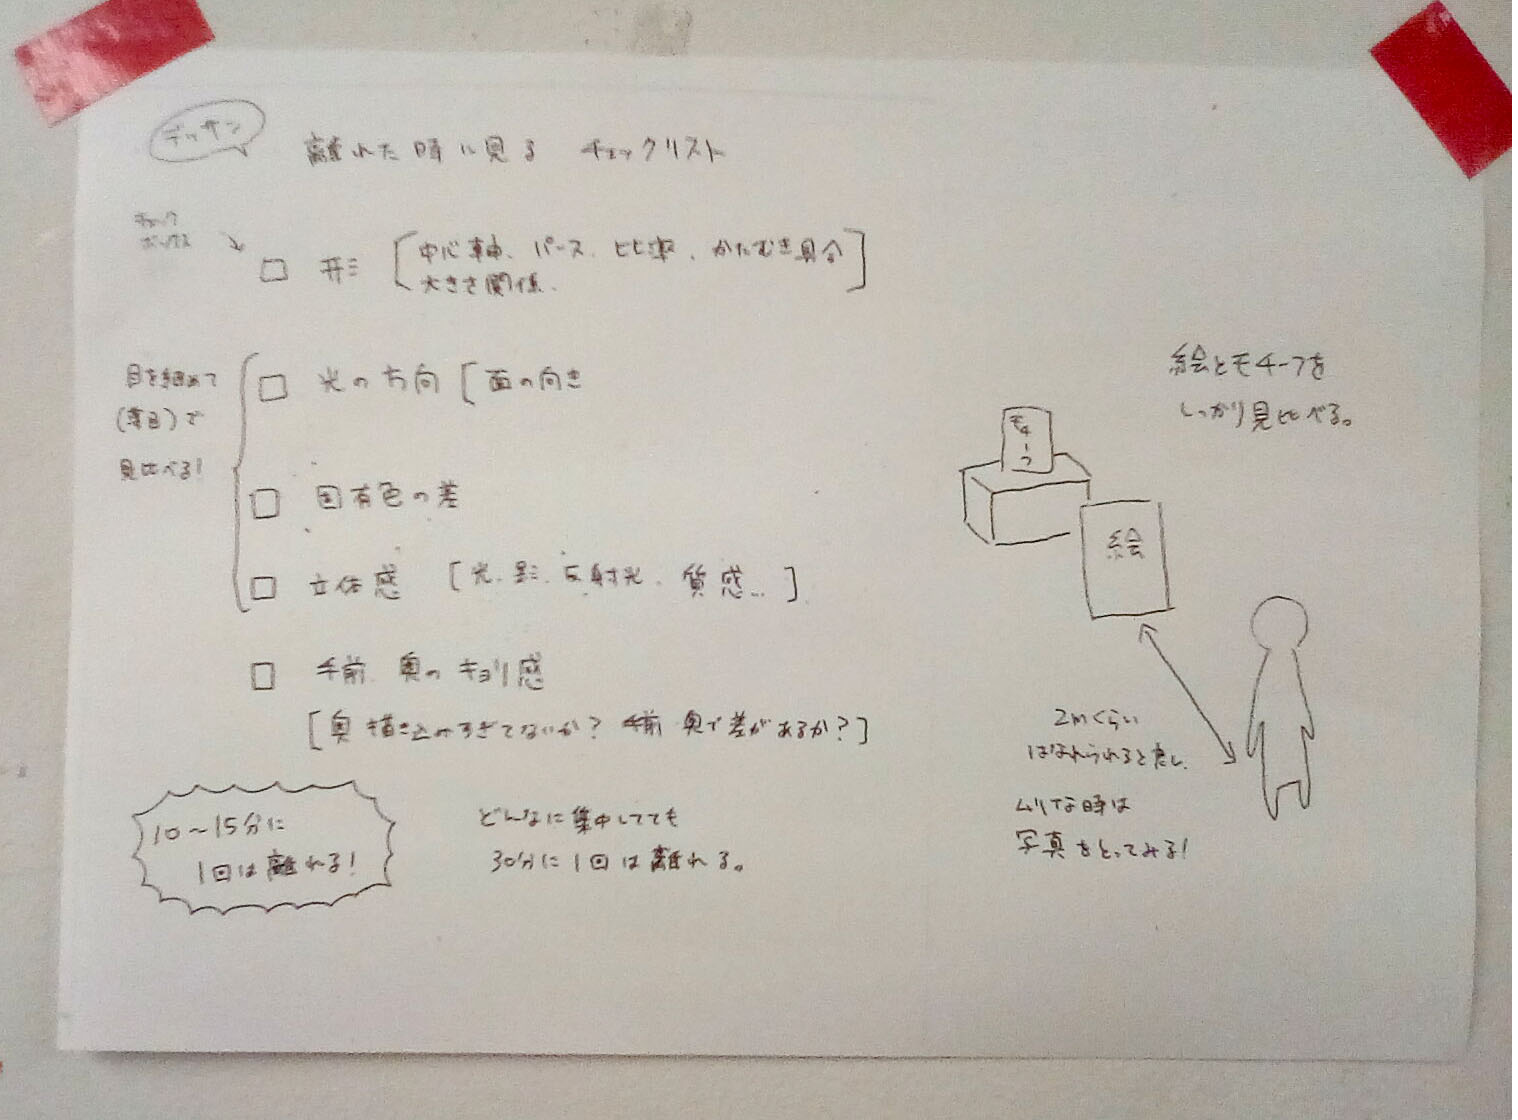 デッサン
離れた時に見る チェックリスト
チェック
ボックス
□ 形 [中心軸、パース、比率、かたむき具合
大きさ関係、]
目を細めて
(薄目)で
見比べる!
□ 光の方向 [面の向き
□ 固有色の差
□ 立体感 [光、影、反射光、質感…]
□ 手前、奥のキョリ感
[奥 描き込みすぎてないか? 手前 奥で差があるか?]
10〜15分に
1回は離れる!
どんなに集中してても
30分に1回は離れる。
絵とモチーフを
しっかり見比べる。
モチーフ
絵
2mくらい
はなれられると良し、
ムリな時は
写真をとってみる!